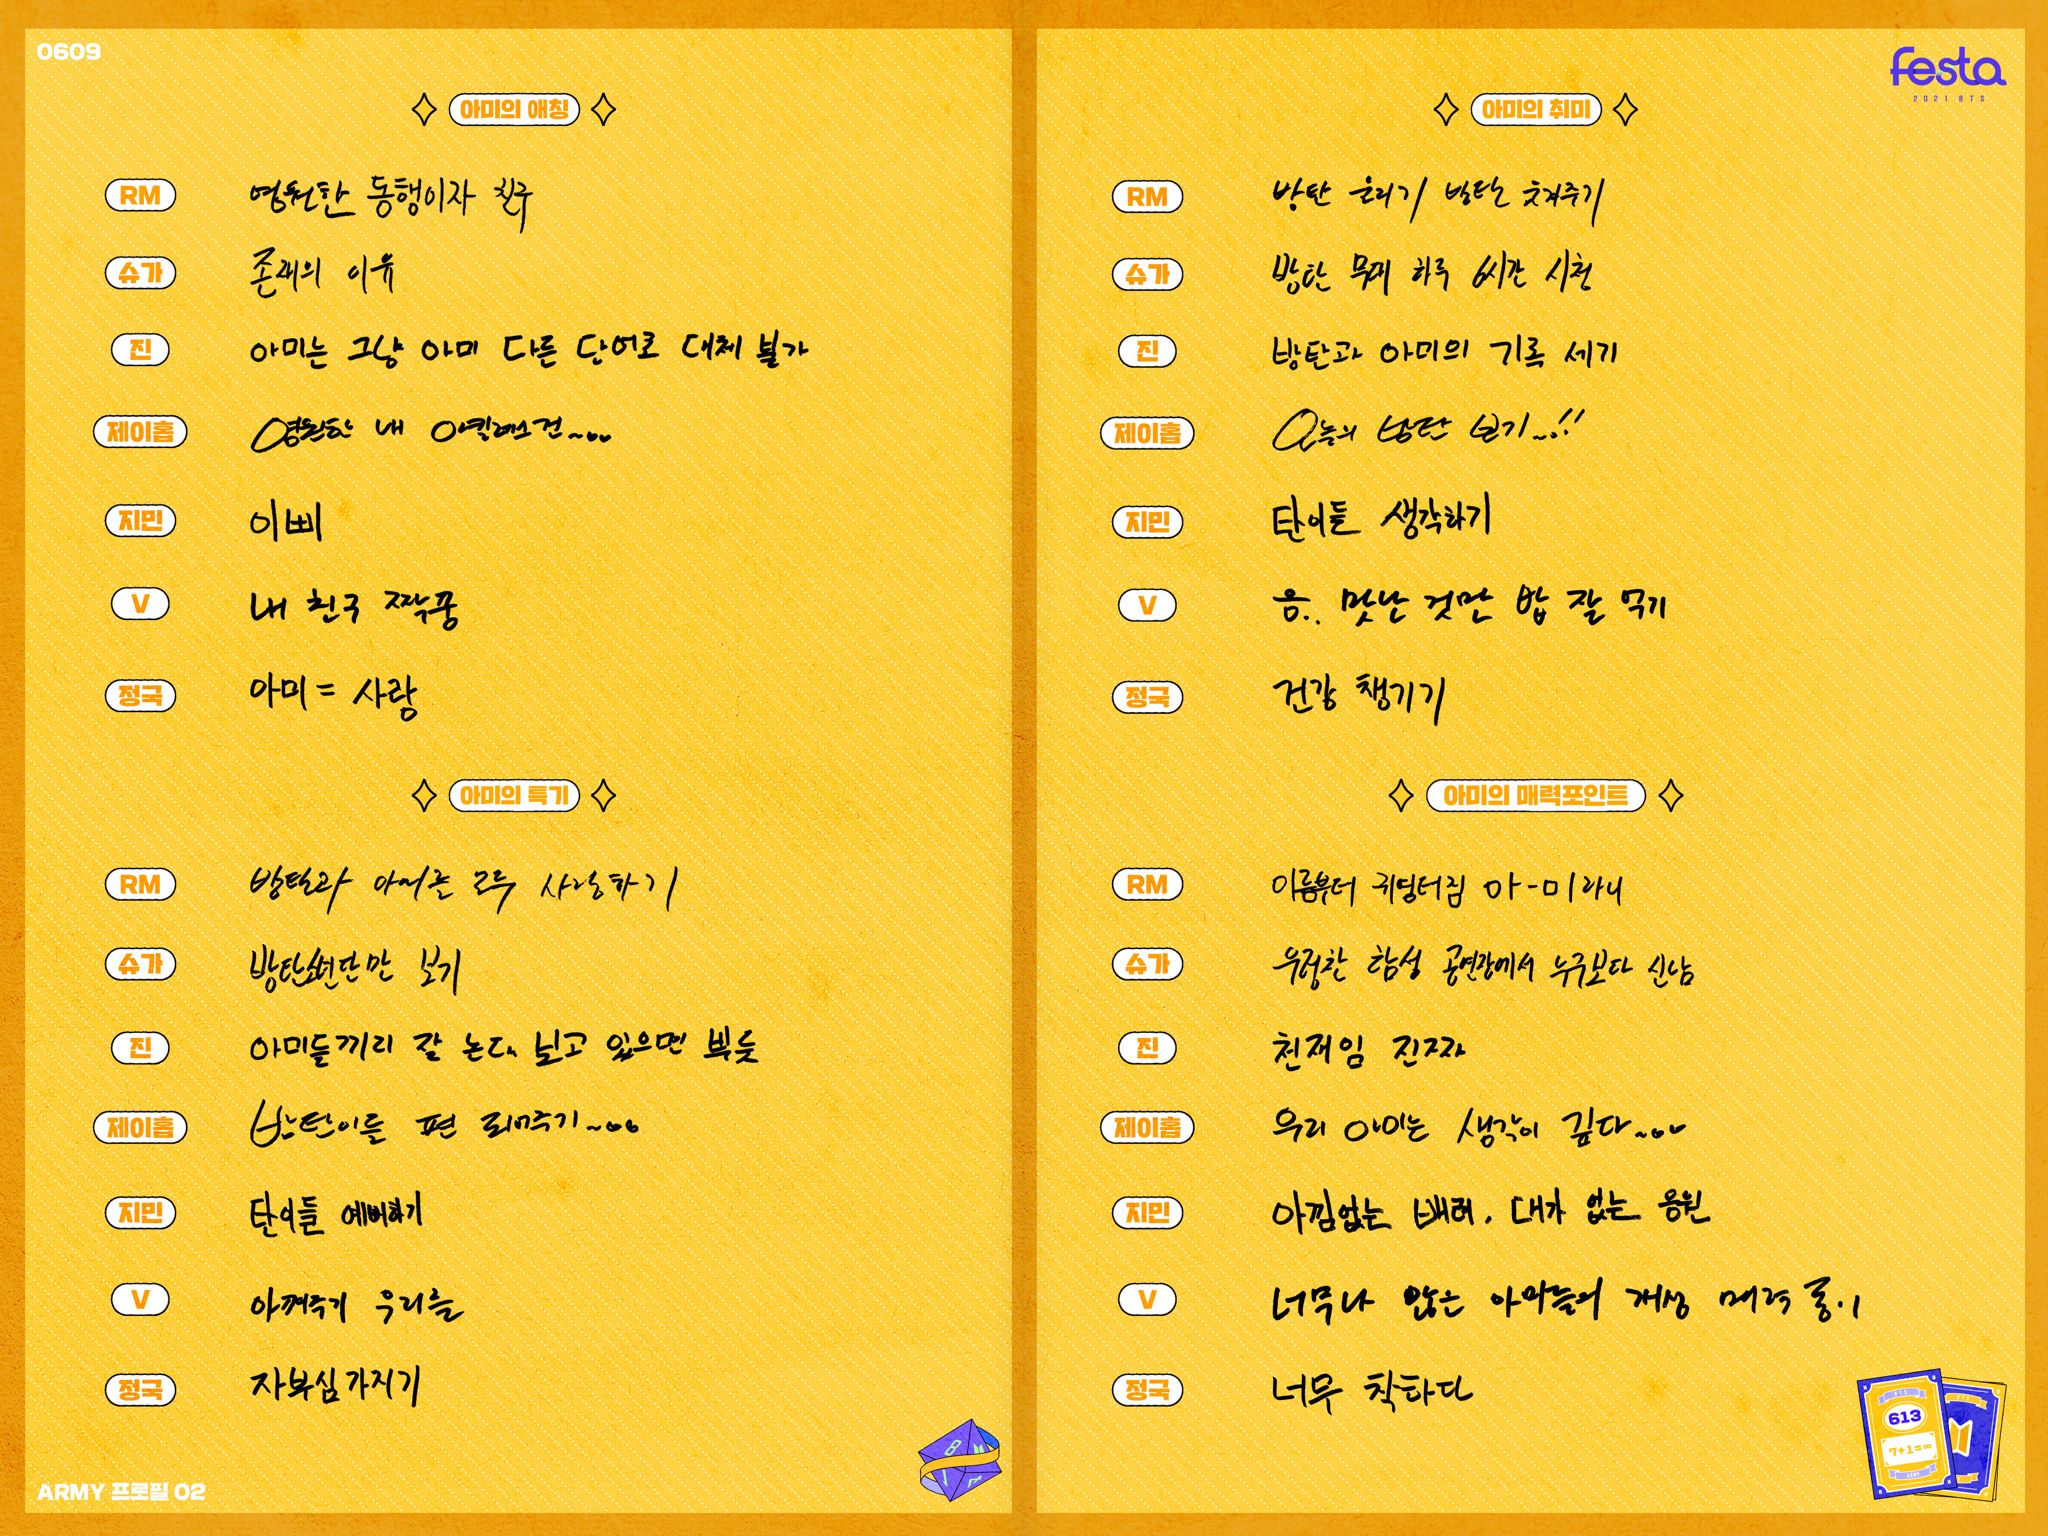 0609
아미의 애칭
RM 영원한 동행이자 친구
슈가 존재의 이유
진 아미는 그냥 아미 다른 단어로 대체 불가
제이홉 영원한 내 아킬레스건~
지민 이삐
V 내 친구 짝꿍
정국 아미 = 사랑
아미의 특기
RM 방탄과 아미를 모두 사랑하기
슈가 방탄소년단만 보기
진 아미들끼리 잘 논다. 보고 있으면 뿌듯
제이홉 방탄이들 편 되어주기~
지민 탄이들 예뻐하기
V 아껴주기 우리를
정국 자부심 가지기
ARMY 프로필 02
festa
2021 BTS
아미의 취미
RM 방탄 울리기 방탄 웃겨주기
슈가 방탄 무대 하루 6시간 시청
진 방탄과 아미의 기록 세기
제이홉 오늘의 방탄 보기~!!
지민 탄이들 생각하기
V 음.. 맛난 것만 밥 잘 먹기
정국 건강 챙기기
아미의 매력포인트
RM 이름부터 귀염터짐 아-미라니
슈가 우렁찬 함성 공연장에서 누구보다 신남
진 천재임 진짜
제이홉 우리 아미는 생각이 깊다~
지민 아낌없는 배려, 대가 없는 응원
V 너무나 많은 아미들의 개성 매력
정국 너무 착하다
613
7+1=∞
ARMY